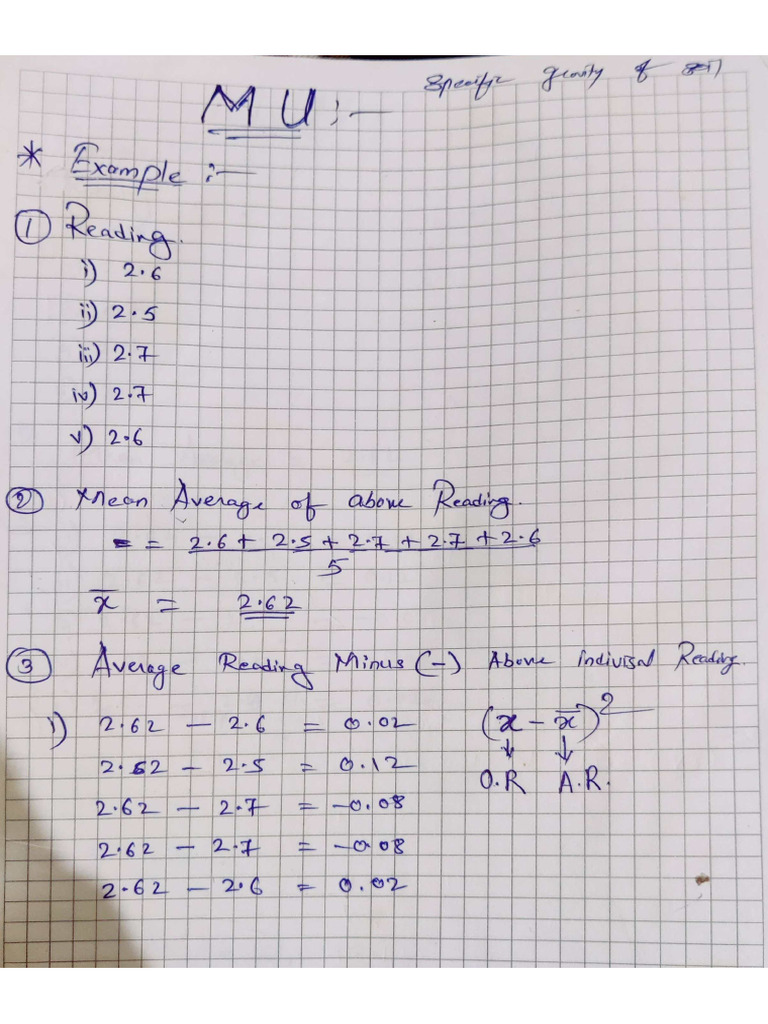 Specific gravity of soil
MU :-
* Example :-
① Reading.
i) 2.6
ii) 2.5
iii) 2.7
iv) 2.7
v) 2.6
② Mean Average of above Reading.
= = 2.6 + 2.5 + 2.7 + 2.7 + 2.6
5
x̄ = 2.62
③ Average Reading Minus (-) Above indivisal Reading.
i) 2.62 - 2.6 = 0.02 (x - x̄)²
2.62 - 2.5 = 0.12 O.R A.R.
2.62 - 2.7 = -0.08
2.62 - 2.7 = -0.08
2.62 - 2.6 = 0.02